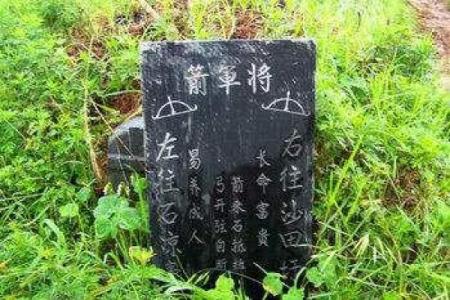 將軍箭
右往沙田
长命富貴
箭來石抵
弓开弦自
易养成人
左往石